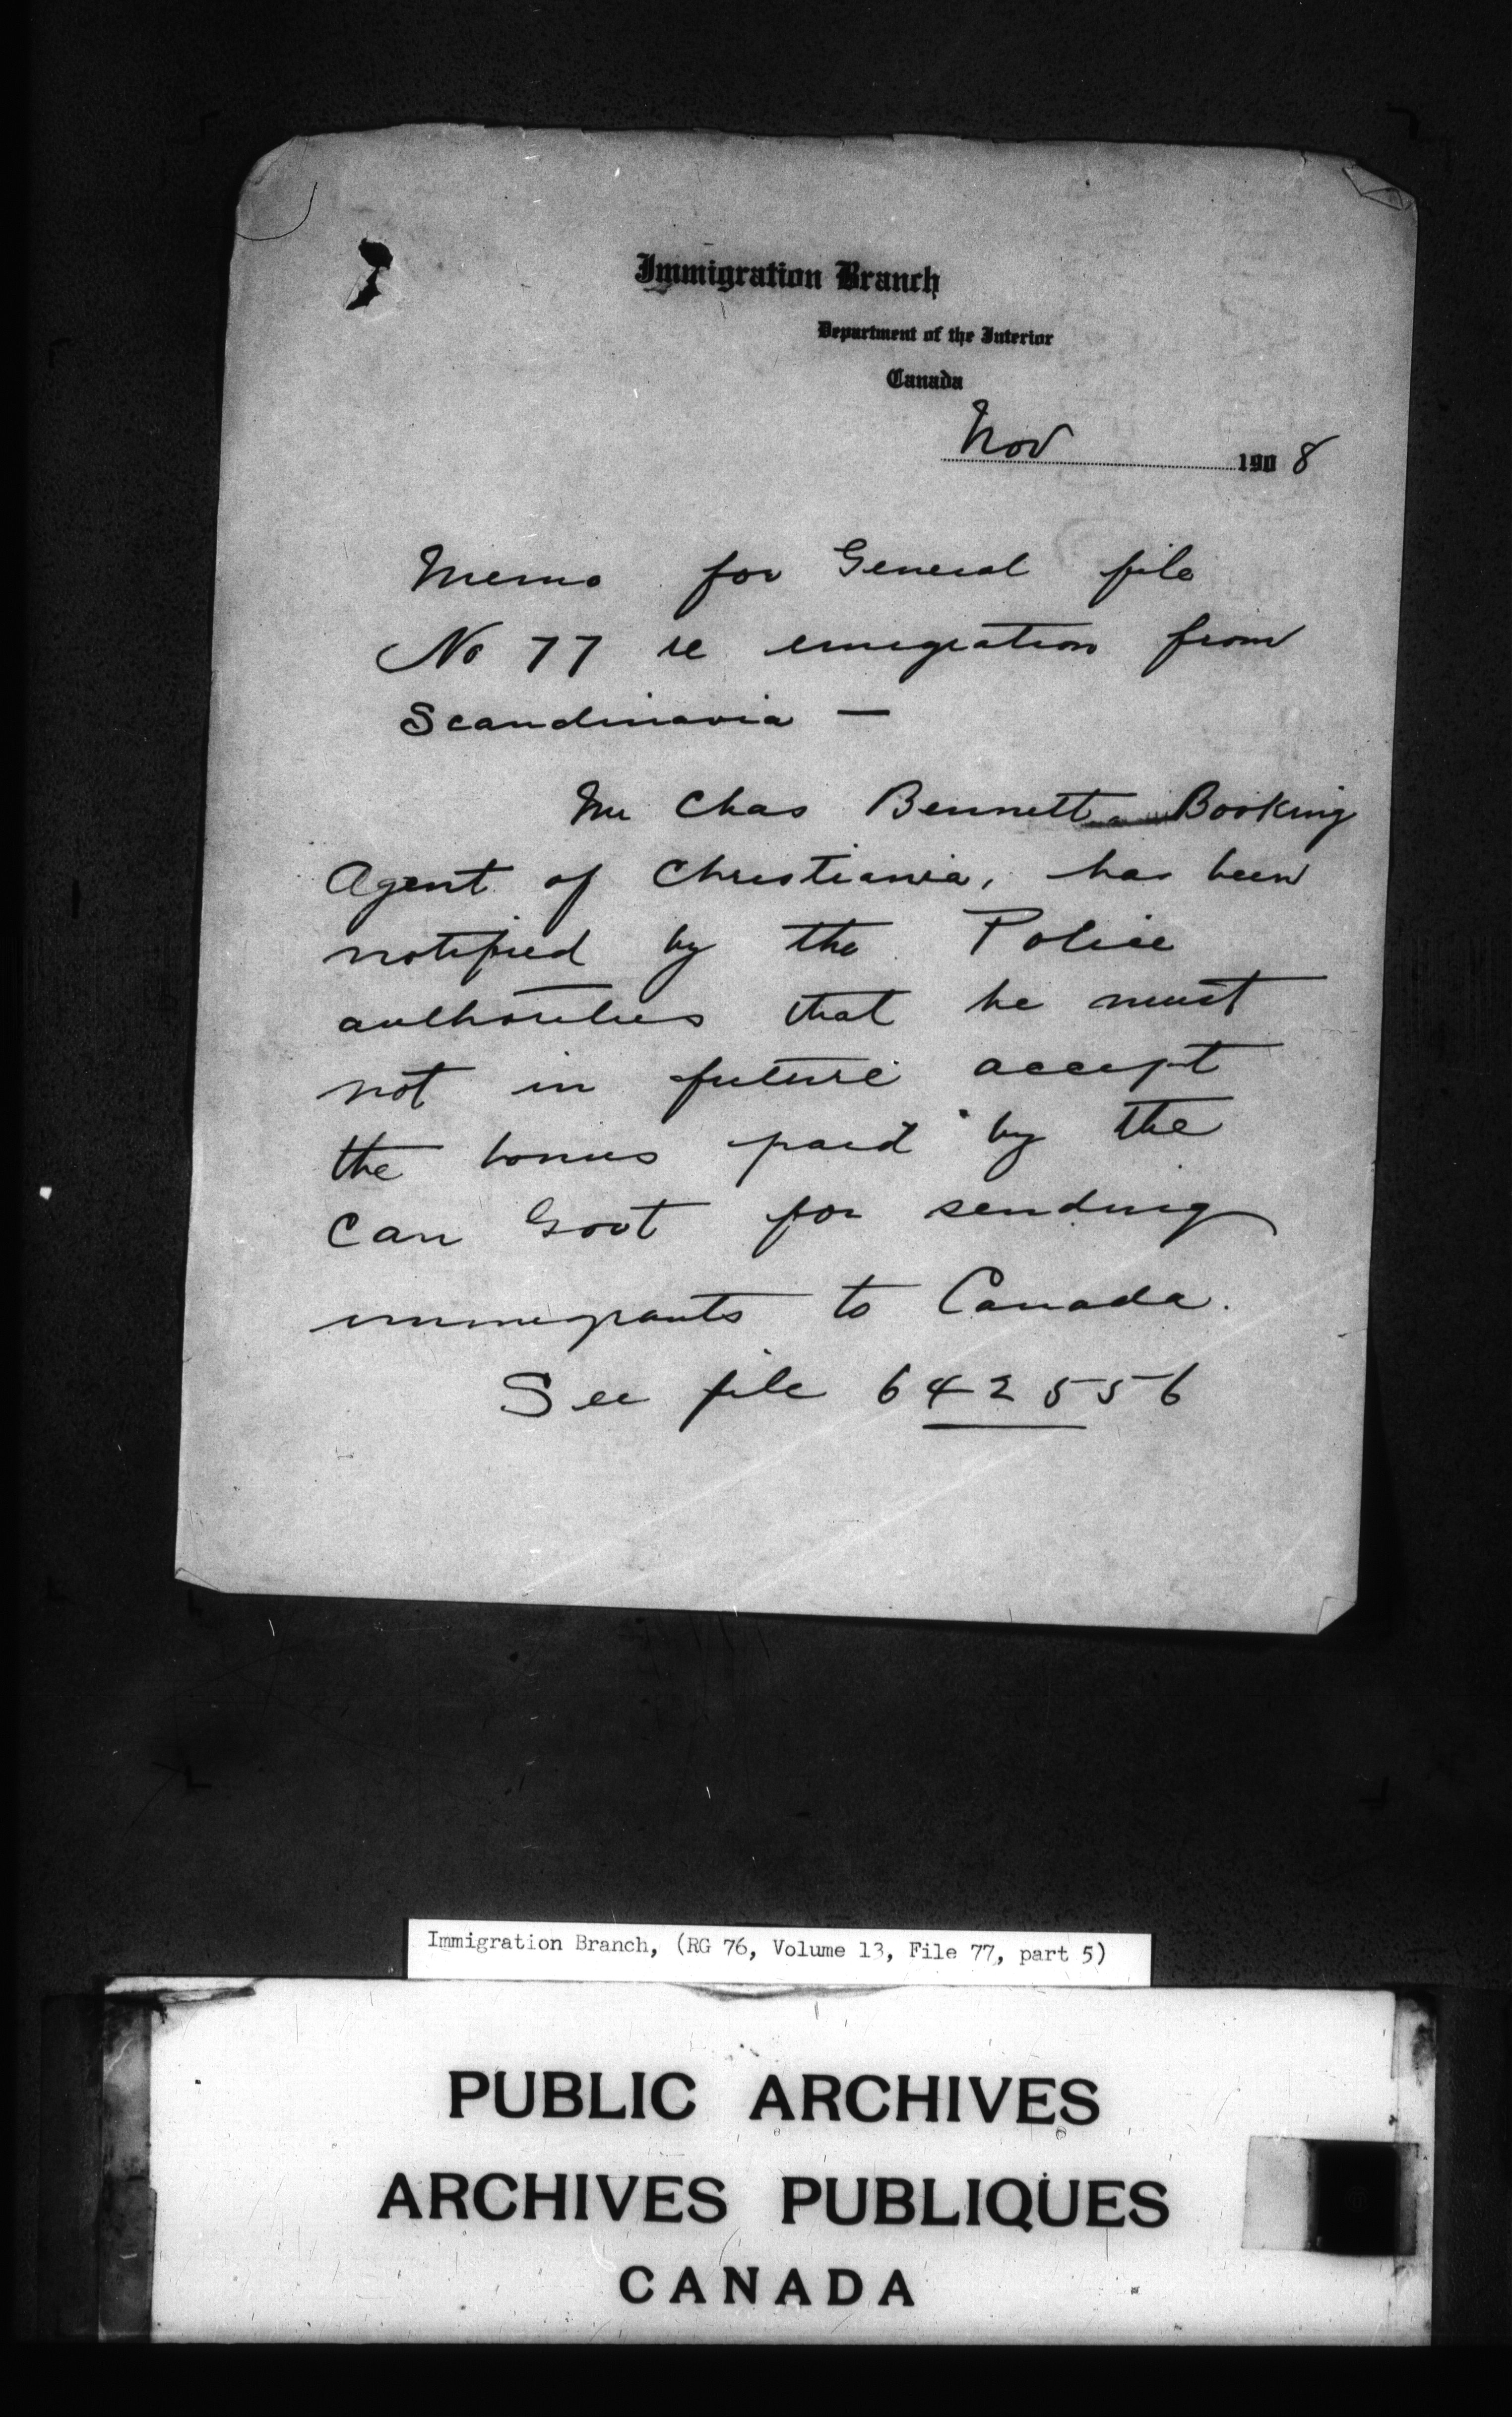 Immigration Branch
Department of the Interior
Canada
Nov 1908
Memo for General file
No 77 re emigration from
Scandinavia —
Mr Chas Bennett Booking
Agent of Christiania, has been
notified by the Police
authorities that he must
not in future accept
the bonus paid by the
Can Govt for sending
immigrants to Canada.
See file 642556
Immigration Branch, (RG 76, Volume 13, File 77, part 5)
PUBLIC ARCHIVES
ARCHIVES PUBLIQUES
CANADA